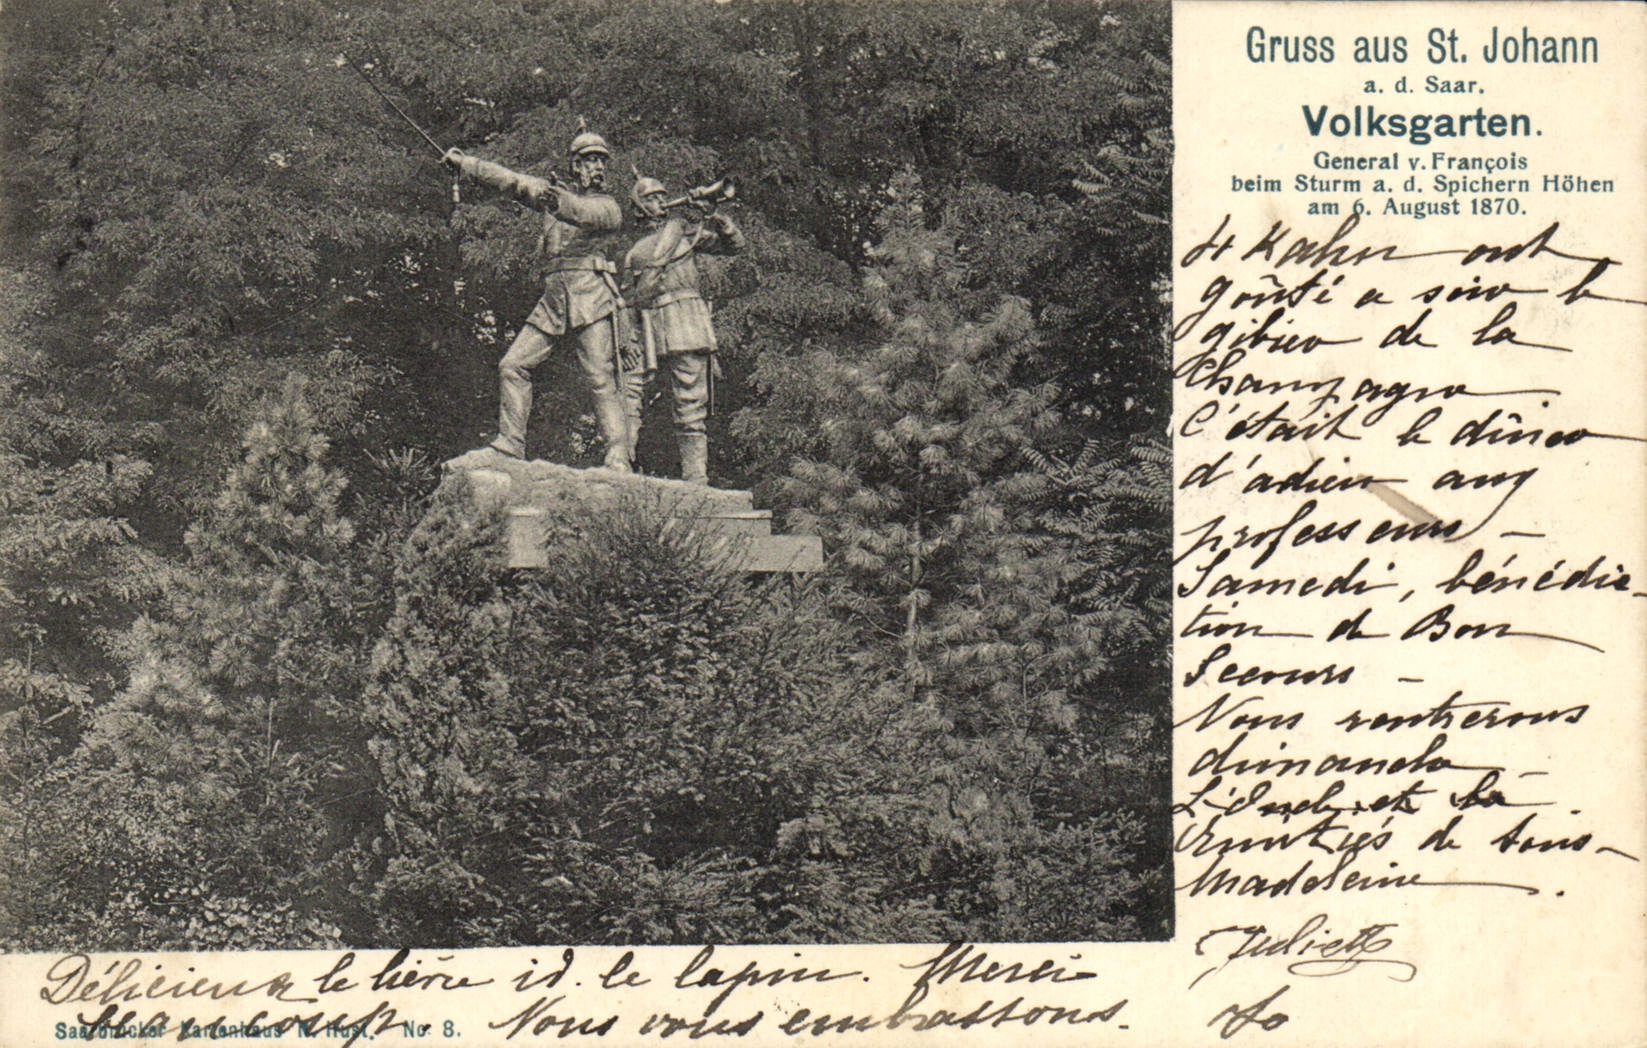 Gruss aus St. Johann
a. d. Saar.
Volksgarten.
General v. François
beim Sturm a. d. Spichern Höhen
am 6. August 1870.
4 Kahn ont
goûté ce soir le
gibier de la
Champagne
C'était le dîner
d'adieu aux
professeurs —
Samedi, bénédic-
tion de Bon
Secours —
Nous rentrerons
dimanche —
et la
Amitiés de tous —
Madeleine.
Juliette
Délicieux le lièvre id. le lapin. Merci
beaucoup. Nous vous embrassons.
Saarbrücker Kartenhaus No 8.